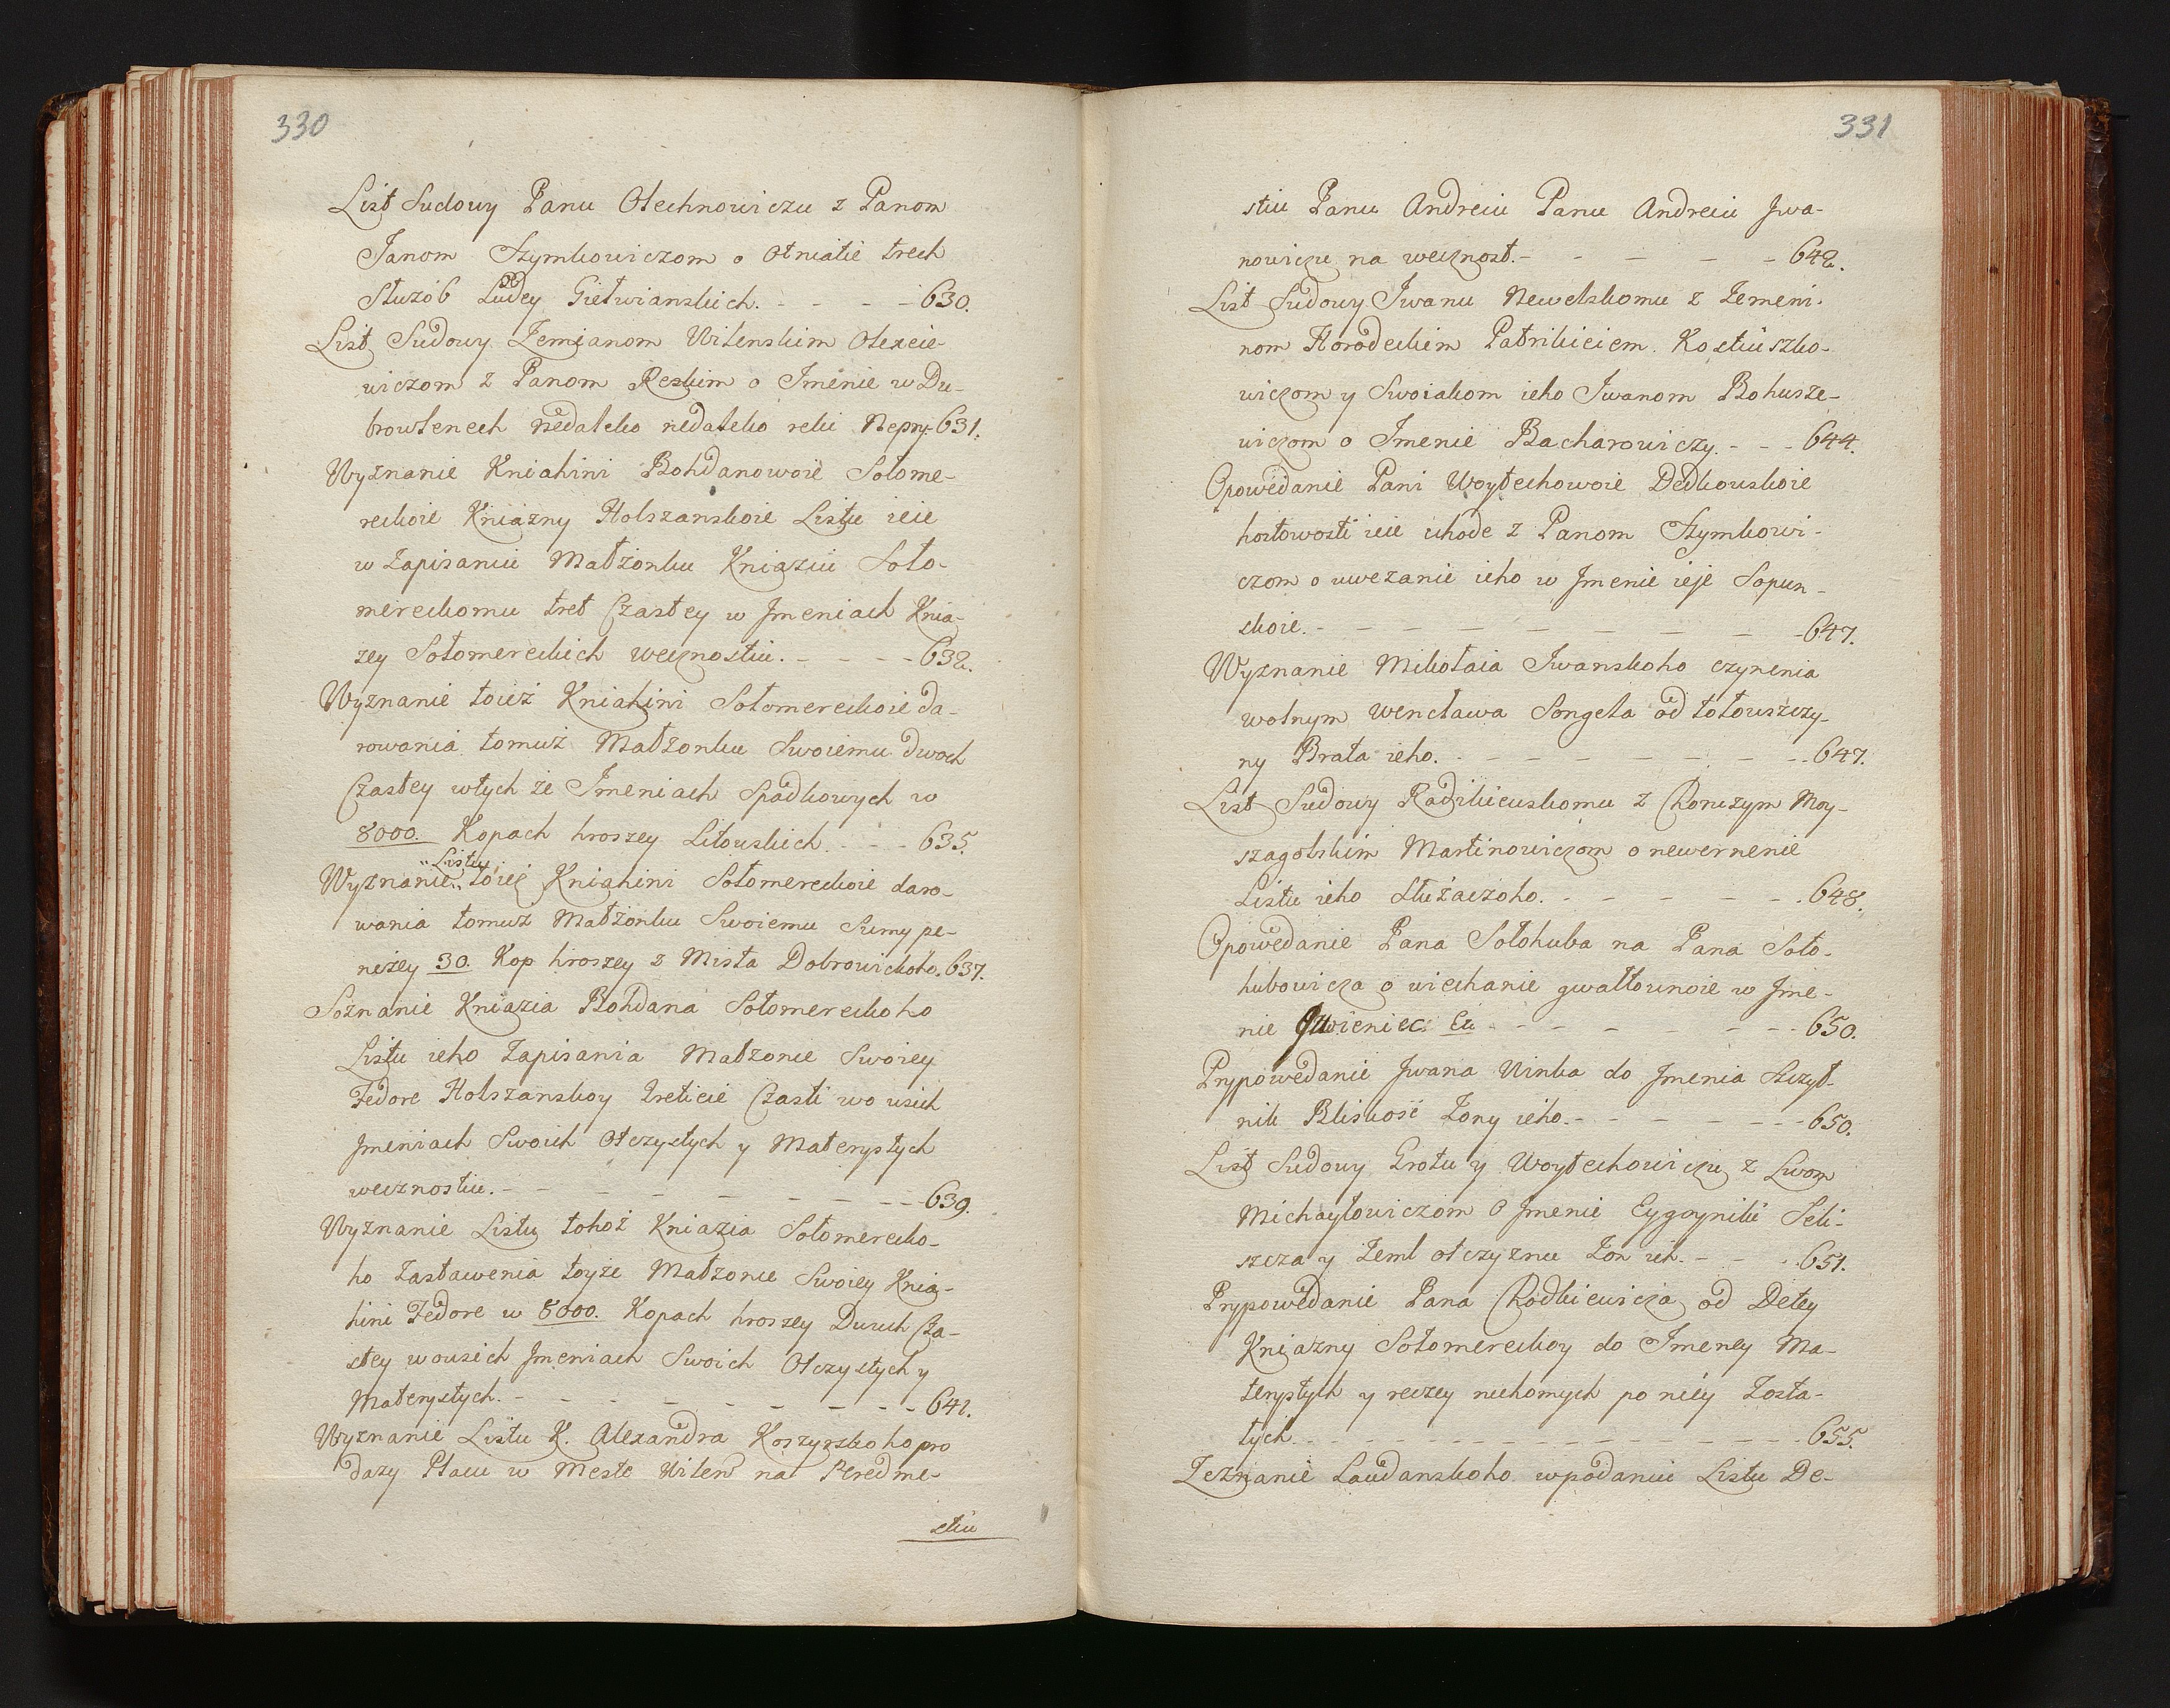 330
List Sudowy Panu Olechnowiczu z Panom
Janom Szymkowiczom o Otniatie trech
Służob Ludey Gietwianskich. - - - - 630.
List Sudowy Zemianom Wilenskim Olexeie-
wiczom z Panom Reskim o Imenie w Du-
browlenech nedaleko nedaleko reki Nepry. 631.
Wyznanie Kniahini Bohdanowoie Sołome-
reckoie Kniazny Holszanskoie Listu ieie
w Zapisaniu Małżonku Kniaziu Soło-
mereckomu tret Czastey w Jmeniach Knia-
zey Sołomereckich wecznostiu. - - - - 632.
Wyznanie toież Kniahini Sołomereckoie da-
rowania tomuż Małżonku Swoiemu dwoch
Czastey wtych że Jmeniach Spadkowych w
8000. Kopach hroszey Litouskich. - - - 635.
Wyznanie "Listu" toież Kniahini Sołomereckoie daro-
wania tomuż Małżonku Swoiemu Sumy pe-
nezey 30. Kop hroszey z Mista Dobrowickoho. 637.
Soznanie Kniazia Bohdana Sołomereckoho
Listu ieho Zapisania Małzonce Swoiey
Fedore Holszanskoy treticie Czasti wo usich
Jmeniach Swoich Otczystych y Materystych
wecznostiu. - - - - - - - - - 639.
Wyznanie Listu tohoż Kniazia Sołomerecko-
ho Zastawenia toyże Małzonce Swoiey Knia-
hini Fedore w 8000. Kopach hroszey Dwuch Cza-
stey wousich Jmeniach Swoich Otczystych y
Materystych. - - - - - - - - 641.
Wyznanie Listu K. Alexandra Koszyrskoho pro
dazy Placu w Meste Wilen na Peredme-
stiu
331
stiu Panu Andreiu Panu Andreiu Jwa-
nowiczu na wecznost. - - - - - 642.
List Sudowy Iwanu Newelskomu z Zemeni-
nom Horodeckim Patrikieiem Kostiuszko-
wiczom y Swoiakom ieho Iwanom Bohusze-
wiczom o Imenie Bacharowiczy. - - - 644.
Opowedanie Pani Woytechowoie Dedkouskoie
hostowosti ieie uhode z Panom Szymkowi-
czom o uwezanie ieho w Jmenie ieje Sopun-
skoie. - - - - - - - - - 647.
Wyznanie Mikołaia Iwanskoho czynenia
wolnym Wencława Songela od tołouszczy-
ny Brata ieho. - - - - - - - - 647.
List Sudowy Radzikieuskomu z Choruzym Moy-
szagolskim Martinowiczom o newernenie
Listu ieho Służaczoho. - - - - - - 648.
Opowedanie Pana Sołohuba na Pana Soło-
hubowicza o wiechanie gwałtounoie w Jme-
nie Jwieniec. - - - - - - - 650.
Prypowedanie Jwana Uinka do Jmenia Szczyt-
nik Bliskość Zony ieho. - - - - - - - 650.
List Sudowy Grotu y Woytechowiczu z Lwom
Michayłowiczom o Jmenie Eygoynikü Seli-
szcza y Zeml otczyznu Zon ich. - - - 651.
Prypowedanie Pana Chodkiewicza od Detey
Kniazny Sołomereckoy do Imeney Ma-
terystych y reczey ruchomych po niey Zosta-
łych. - - - - - - - - - - - 655.
Zeznanie Laudanskoho wpodaniu Listu De-